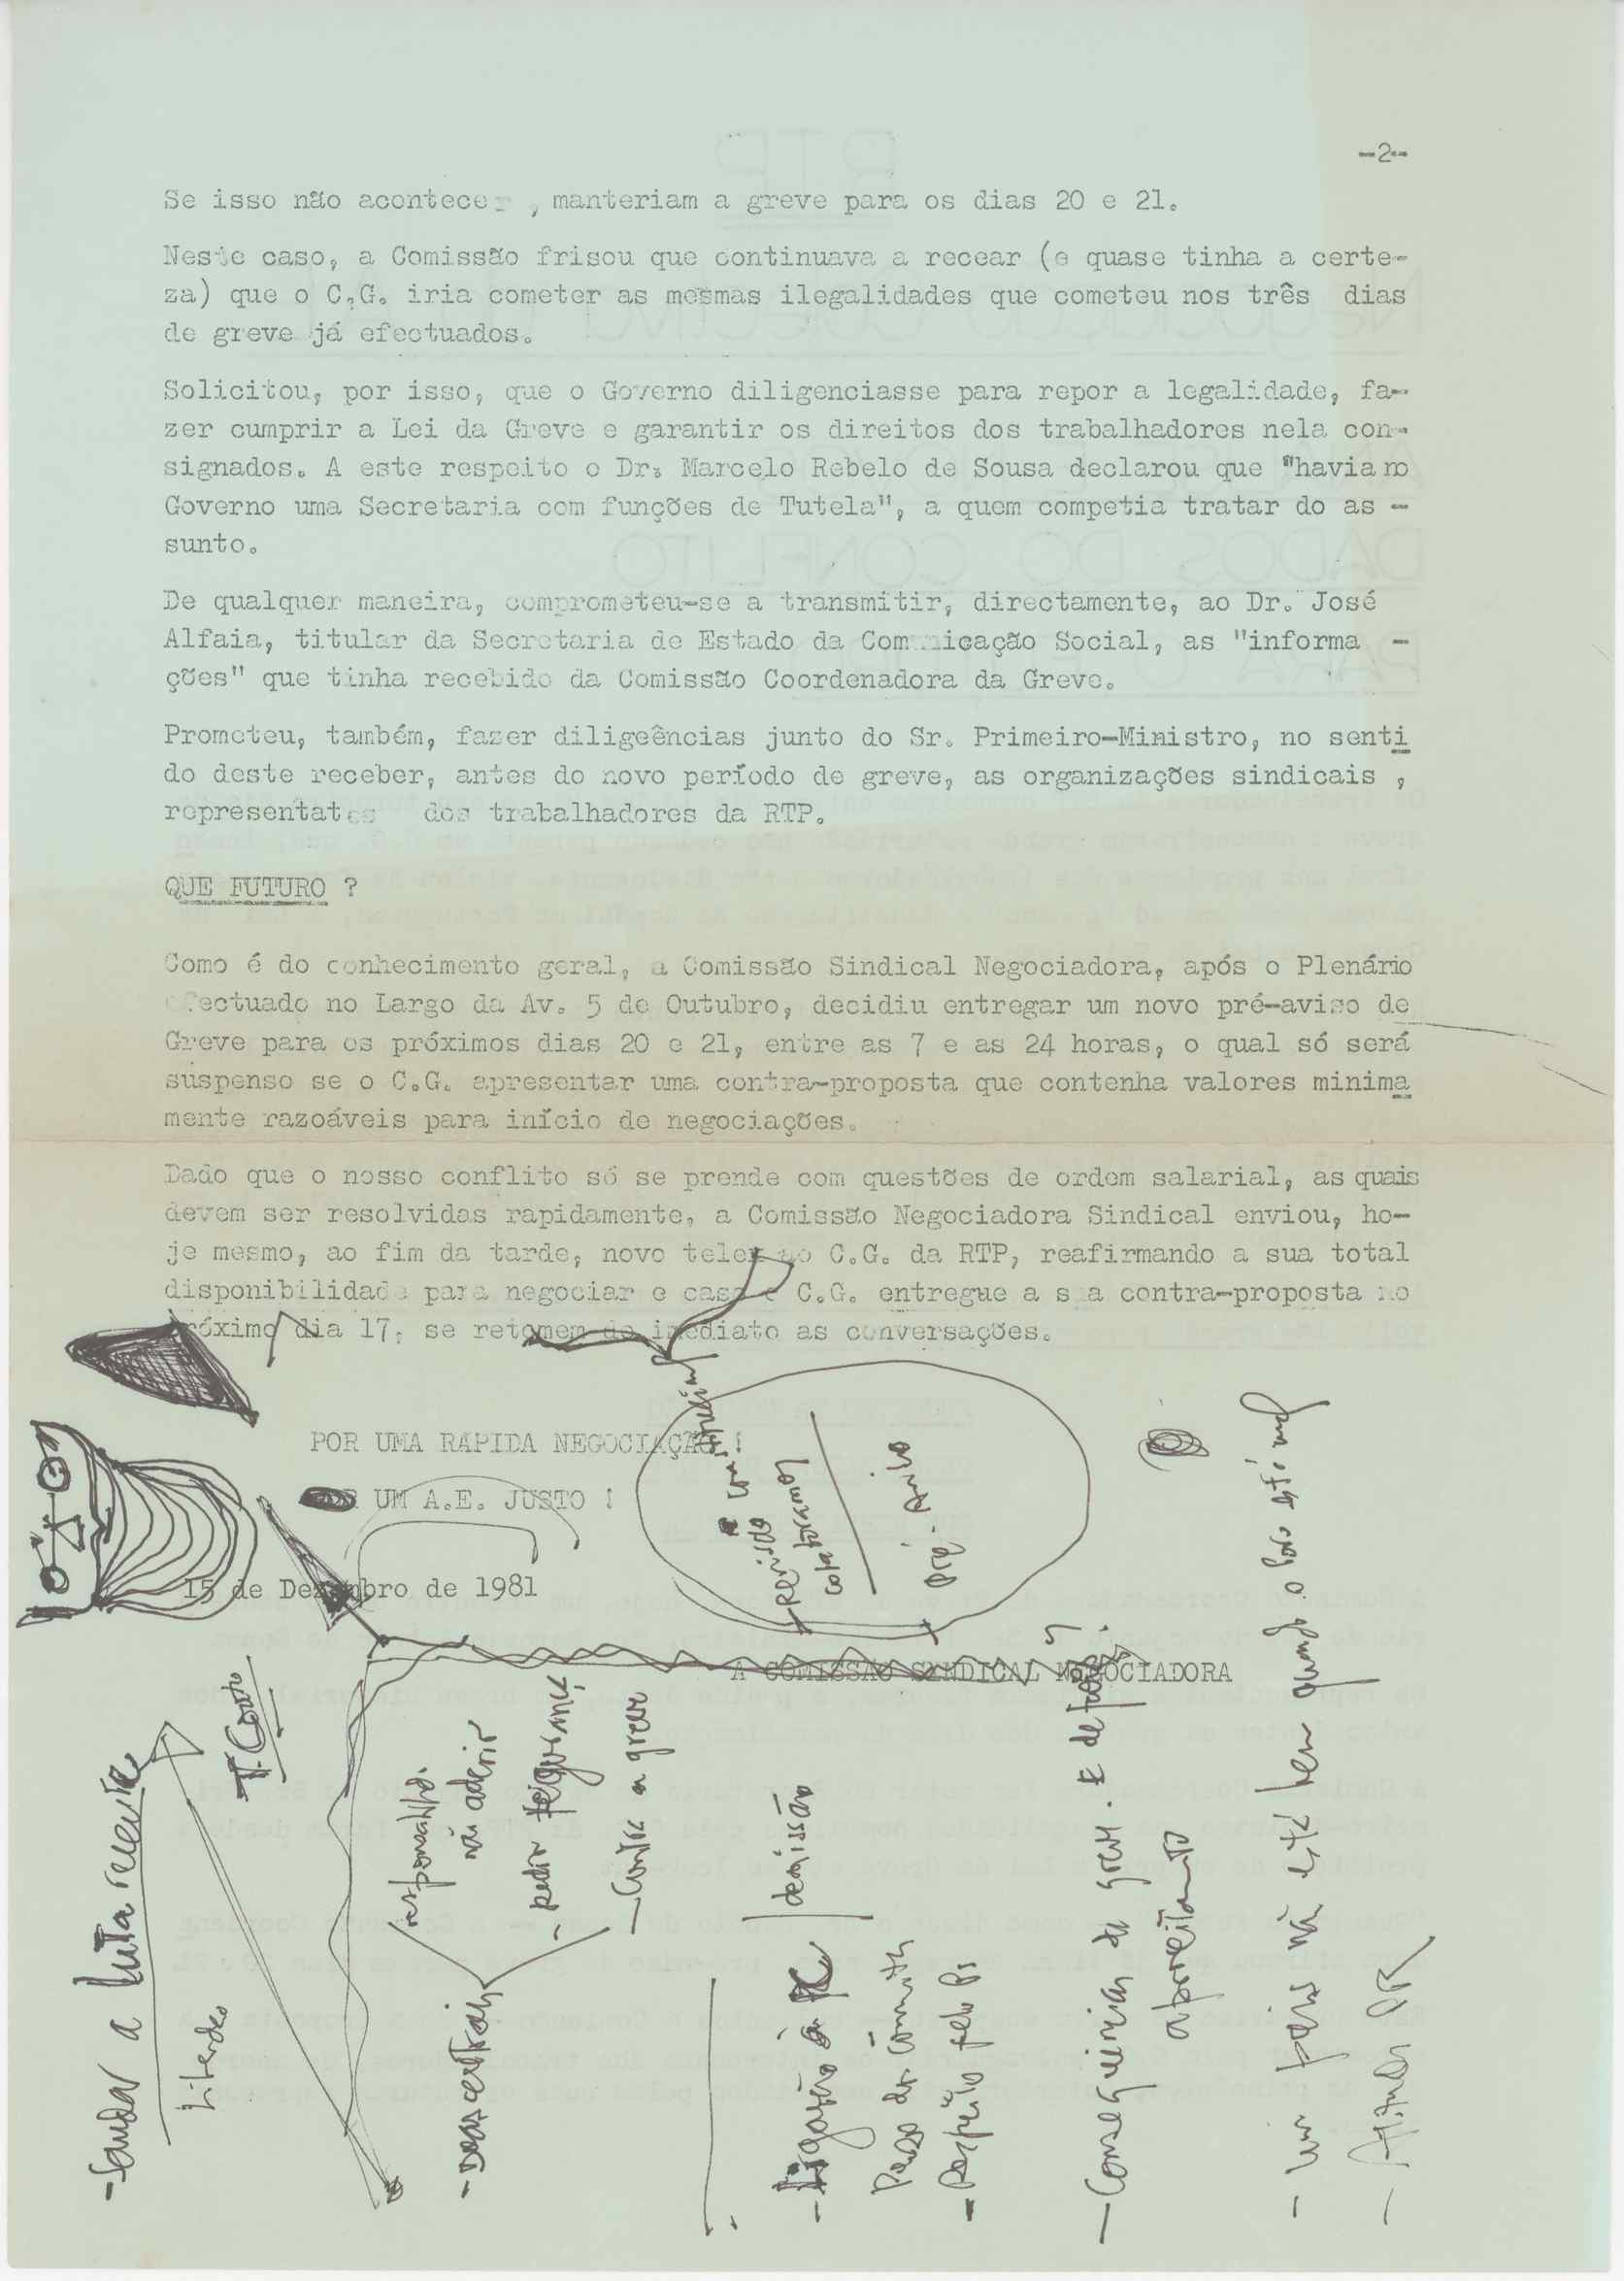 -2-
Se isso não acontecer , manteriam a greve para os dias 20 e 21.
Neste caso, a Comissão frisou que continuava a recear (e quase tinha a certe-
za) que o C.G. iria cometer as mesmas ilegalidades que cometeu nos três dias
de greve já efectuados.
Solicitou, por isso, que o Governo diligenciasse para repor a legalidade, fa-
zer cumprir a Lei da Greve e garantir os direitos dos trabalhadores nela con-
signados. A este respeito o Dr. Marcelo Rebelo de Sousa declarou que "havia no
Governo uma Secretaria com funções de Tutela", a quem competia tratar do as -
sunto.
De qualquer maneira, comprometeu-se a transmitir, directamente, ao Dr. José
Alfaia, titular da Secretaria de Estado da Comunicação Social, as "informa -
ções" que tinha recebido da Comissão Coordenadora da Greve.
Prometeu, também, fazer diligeências junto do Sr. Primeiro-Ministro, no senti
do deste receber, antes do novo período de greve, as organizações sindicais ,
representates dos trabalhadores da RTP.
QUE FUTURO ?
Como é do conhecimento geral, a Comissão Sindical Negociadora, após o Plenário
efectuado no Largo da Av. 5 de Outubro, decidiu entregar um novo pré-aviso de
Greve para os próximos dias 20 e 21, entre as 7 e as 24 horas, o qual só será
suspenso se o C.G. apresentar uma contra-proposta que contenha valores minima
mente razoáveis para início de negociações.
Dado que o nosso conflito só se prende com questões de ordem salarial, as quais
devem ser resolvidas rapidamente, a Comissão Negociadora Sindical enviou, ho-
je mesmo, ao fim da tarde, novo telex ao C.G. da RTP, reafirmando a sua total
disponibilidade para negociar e caso o C.G. entregue a sua contra-proposta no
próximo dia 17, se retomem de imediato as conversações.
POR UMA RAPIDA NEGOCIAÇÃO !
POR UM A.E. JUSTO !
15 de Dezembro de 1981
A COMISSÃO SINDICAL NEGOCIADORA
- Saudar a luta
T. Couto
responsabilid.
não aderir
- pedir
- Contra a greve
- Ligação à
demissão
- Despeito pelo Ps
- Consequências da greve. E depois?
aproveitamento
- um país não está bem quando
- Atitude PR